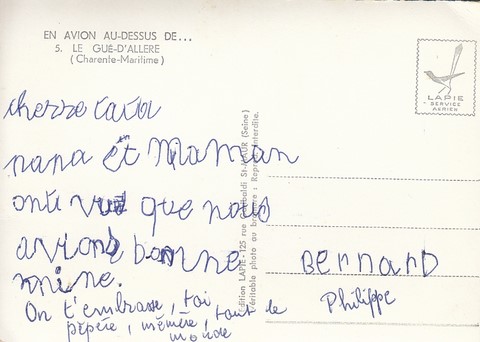 EN AVION AU-DESSUS DE...
5. LE GUÉ-D'ALLERE
(Charente-Maritime)
LAPIE
SERVICE
AERIEN
papa et Maman
ont vu que nous
avions bonne
mine.
On t'embrasse, toi
pépère, mémère, tout le
monde
BERNARD
Philippe
Edition LAPIE - 125 rue Garibaldi St-MAUR (Seine)
Véritable photo au bromure : Reprod. interdite.